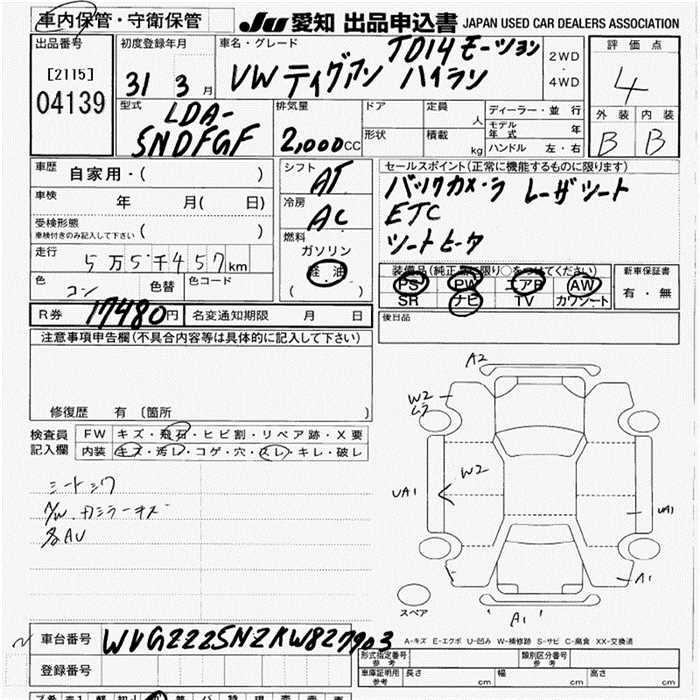 車内保管・守衛保管
JU 愛知 出品申込書 JAPAN USED CAR DEALERS ASSOCIATION
出品番号
[2115]
04139
初度登録年月
31 3 月
車名・グレード
TDI4モーション
VWティグアン ハイライン
2WD
・
4WD
評価点
4
外装 内装
B B
型式
LDA-
5NDFGF
排気量
2,000cc
ドア
形状
定員
人
積載
kg
ディーラー・並行
モデル年式 年
ハンドル 左・右
車歴
自家用・( )
車検
年 月( 日)
受検形態
車検付きのみ記入して下さい ( )
走行
5万5千457km
色
コン
色替
色コード
シフト
AT
冷房
AC
燃料
ガソリン
軽油
( )
セールスポイント(正常に機能するものに限ります)
バックカメラ レーザシート
ETC
シートヒータ
装備品(純正品に限り○をつけてください)
PS PW エアB AW
SR ナビ TV カワシート
新車保証書
有・無
R券 17480円
名変通知期限 月 日
後日品
注意事項申告欄(不具合内容等は具体的に記入して下さい)
修復歴 有 〔箇所 〕
検査員
記入欄
FW キズ・飛石・ヒビ割・リペア跡・X要
内装 キズ・汚レ・コゲ・穴・スレ・キレ・破レ
シートシワ
A/W.カシラーキズ
各AU
A2
W2
W2
UA1
UA1
A1
A1
スペア
A-キズ E-エクボ U-凹み W-補修跡 S-サビ C-腐食 XX-交換済
車台番号 WVGZZZ5NZKW827903
登録番号
形式指定番号
参考
類別区分番号
参考
車庫証明用
参考
長さ cm 幅 cm 高さ cm